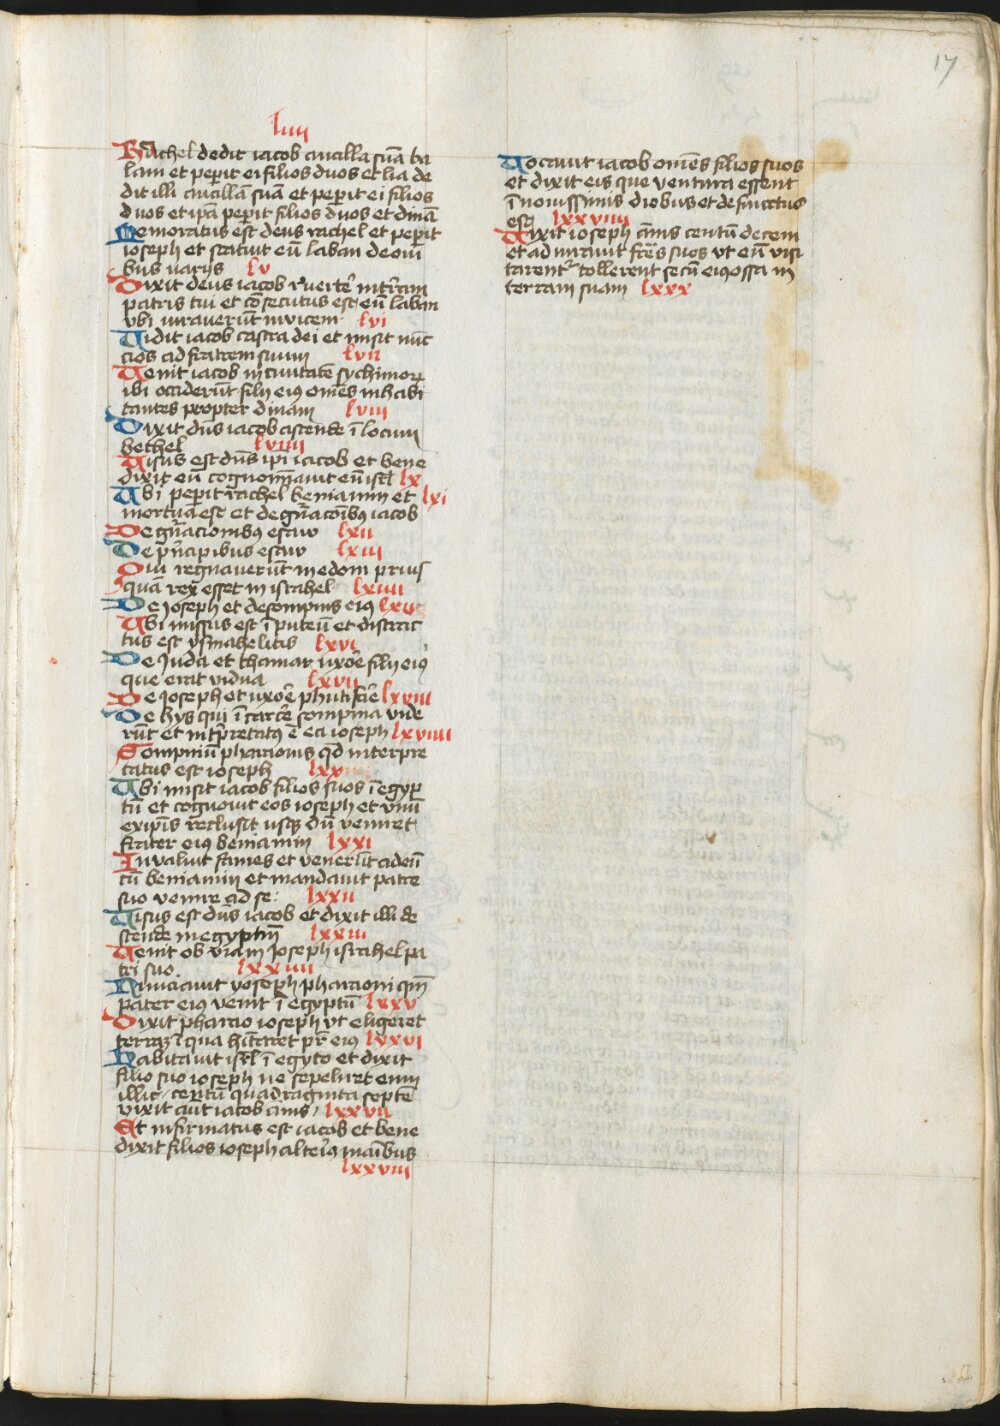 17
liiii
Rachel dedit iacob ancilla suā ba
lam et peꝑit ei filios duos et lia de
dit illi ancillā suā et peꝑit ei filios
duos et ipā peꝑit filios duos et dinā
Memoratus est deus rachel et peꝑit
ioseph et statuit eū laban de oui
bus uarijs lv
Dixit deus iacob reuerte in t̄ram
patris tui et cōsecutus est eū laban
vbi iurauerūt inuicem lvi
Vidit iacob castra dei et misit nūc
cios ad fratrem suum lvii
Venit iacob in ciuitatē sychimoꝝ
ibi occiderūt filij eiꝰ om̄es inhabi
tantes propter dinam lviii
Dixit dn̄s iacob ascende ī locum
bethel lviiii
Visus est dn̄s ipi iacob et bene
dixit eū cognominauit eū isrl lx
Vbi peperit rachel beniamin et lxi
mortua est et de gn̄acōibꝰ iacob
De gn̄acionibꝰ esau lxii
De pⁱncipibus esau lxiii
Qui regnauerūt in edom prius
quam rex esset in israhel lxiiii
De ioseph et de sompnis eiꝰ lxv
Vbi missus est ī puteū et distrac
tus est ysmahelitis lxvi
De Juda et thamar uxōe filij eiꝰ
que erat vidua lxvii
De ioseph et uxōe phutifār lxviii
De hys qui ī carcē sompnia vide
rūt et intp̄retatꝰ ē ea ioseph lxviiii
Sompniū pharaonis qd̄ interpre
tatus est ioseph lxx
Vbi misit iacob filios suos ī egyp
tū et cognouit eos ioseph et vnū
ex ip̄is reclusit usqꝫ dū veniret
frater eiꝰ beniamin lxxi
Inualuit fames et venerūt ad eū
cū beniamin et mandauit patre
suo venire ad se: lxxii
Visus est dn̄s iacob et dixit illi de
scende in egyptum lxxiii
Venit ob viam Joseph israhel pa
tri suo. lxxiiii
Nunciauit yoseph pharaoni qm̄
pater eiꝰ venit ī egyptū lxxv
Dixit pharao ioseph vt eligeret
terrā ī qua hītaret pr̄ eiꝰ lxxvi
Habitauit isrl ī egyto et dixit
filio suo ioseph ne sepeliret eum
illic, centū quadraginta septē
vixit aut iacob annis, lxxvii
Et infirmatus est iacob et bene
dixit filios ioseph alteris maībus
lxxviii
Vocauit iacob om̄es filios suos
et dixit eis que ventura essent
ī nouissimis diebus et defunctus
est lxxviiii
Vixit ioseph annis centū decem
et adiurauit fr̄es suos vt eū visi
tarent tollerent secū eiꝰ ossa in
terram suam lxxx